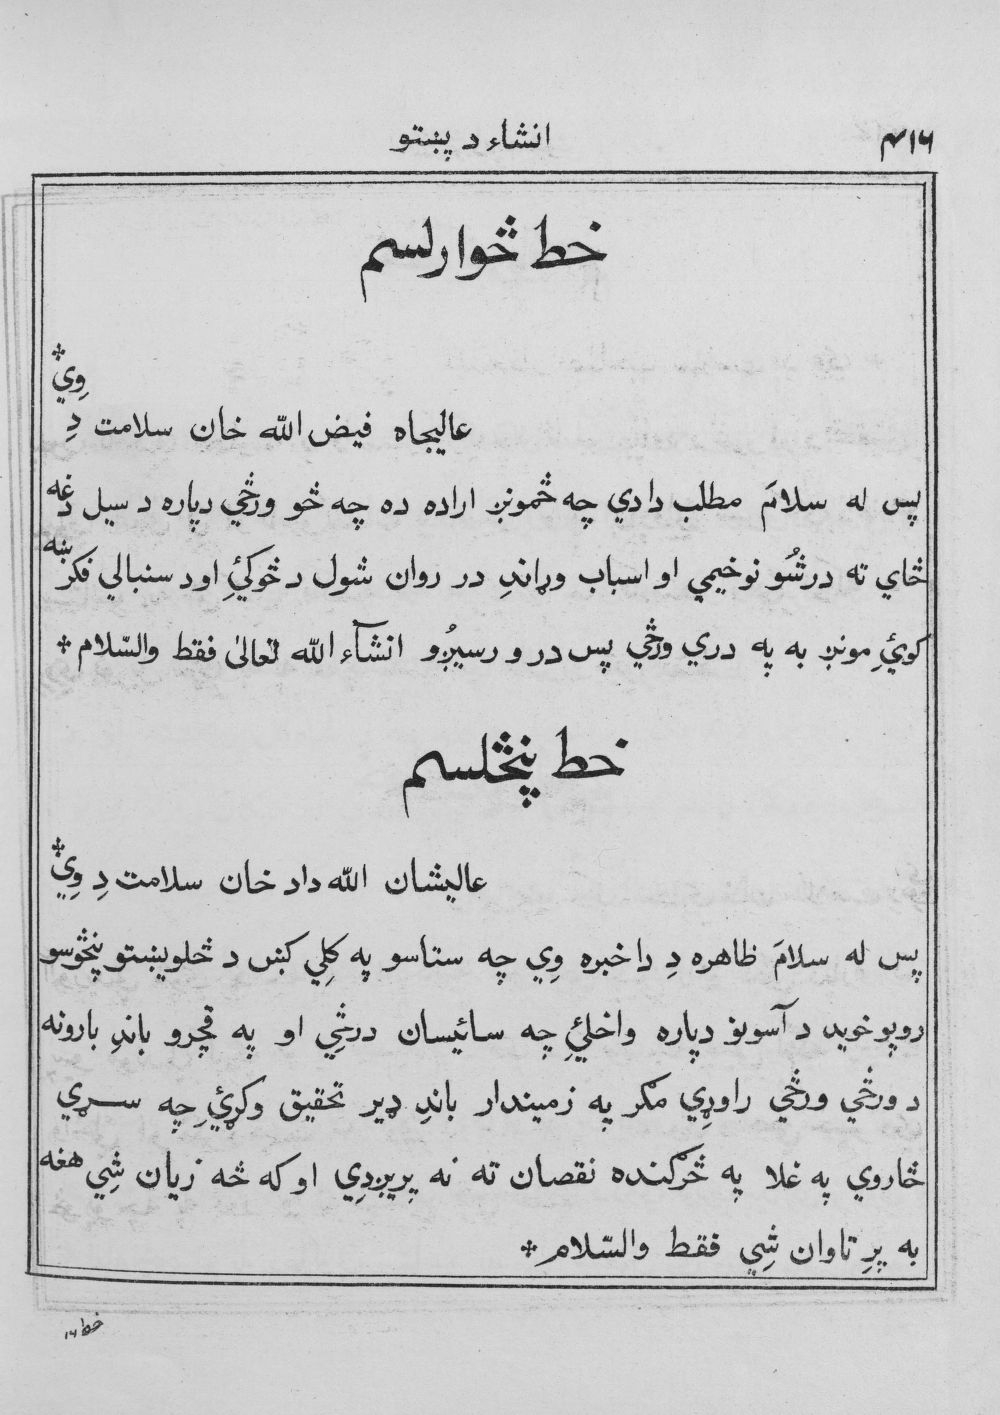 انشاء د پښتو ۴۱۶
خط څوارلسم
عالیجاه فیض الله خان سلامت دِ وِي
پس له سلامَ مطلب دا دي چه ځمونږ اراده ده چه څو ورځي دپاره د سیل دغه
ځاي ته درشُو نو خیمي او اسباب وړاندِ در روان شول د څوکئِ او د سنبالي فکر ښه
کوئِ مونږ به په دري ورځي پس در و رسیږُو انشآء الله تعالیٰ فقط والسّلام
خط پنځلسم
عالیشان الله داد خان سلامت دِ وِي
پس له سلامَ ظاهره دِ دا خبره وِي چه ستاسو په کلِي کښ د څلویښتو پنځوسو
روپو خوید د آسونو دپاره واخلئِ چه سائیسان درشِي او په قچرو باندِ بارونه
د ورځي ورځي راوړِي مګر په زمیندار باندِ ډیر تحقیق وکړئِ چه سړي
څاروي په غلا په څرګنده نقصان ته نه پرِیږدِي او که څه زیان شِي هغه
به پرِ تاوان شِي فقط والسّلام
خط ۱۶